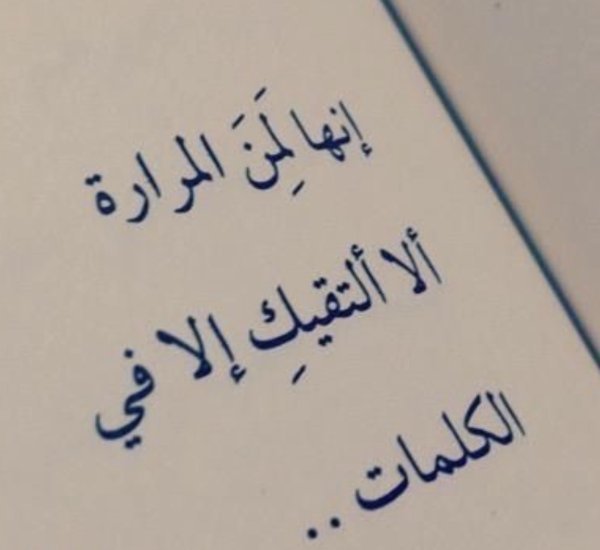 إنها لَمِنَ المرارة
ألا ألتقيكِ إلا في
الكلمات ..